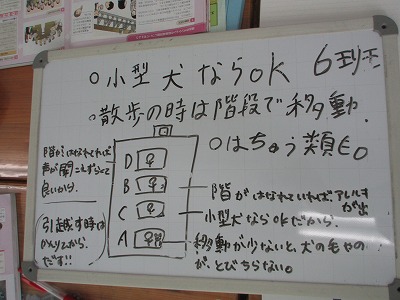 ○小型犬ならOK 6班
○散歩の時は階段で移動.
○はちゅう類もo
階がはなれてれば
声が聞こえずらくて
良いから。
D
B
C
A
引越す時は
かくしてから.
だす!!
階がはなれていれば、アレルギ
が出
小型犬ならOKだから.
移動が少ないと、犬の毛やの
が、とびちらない。